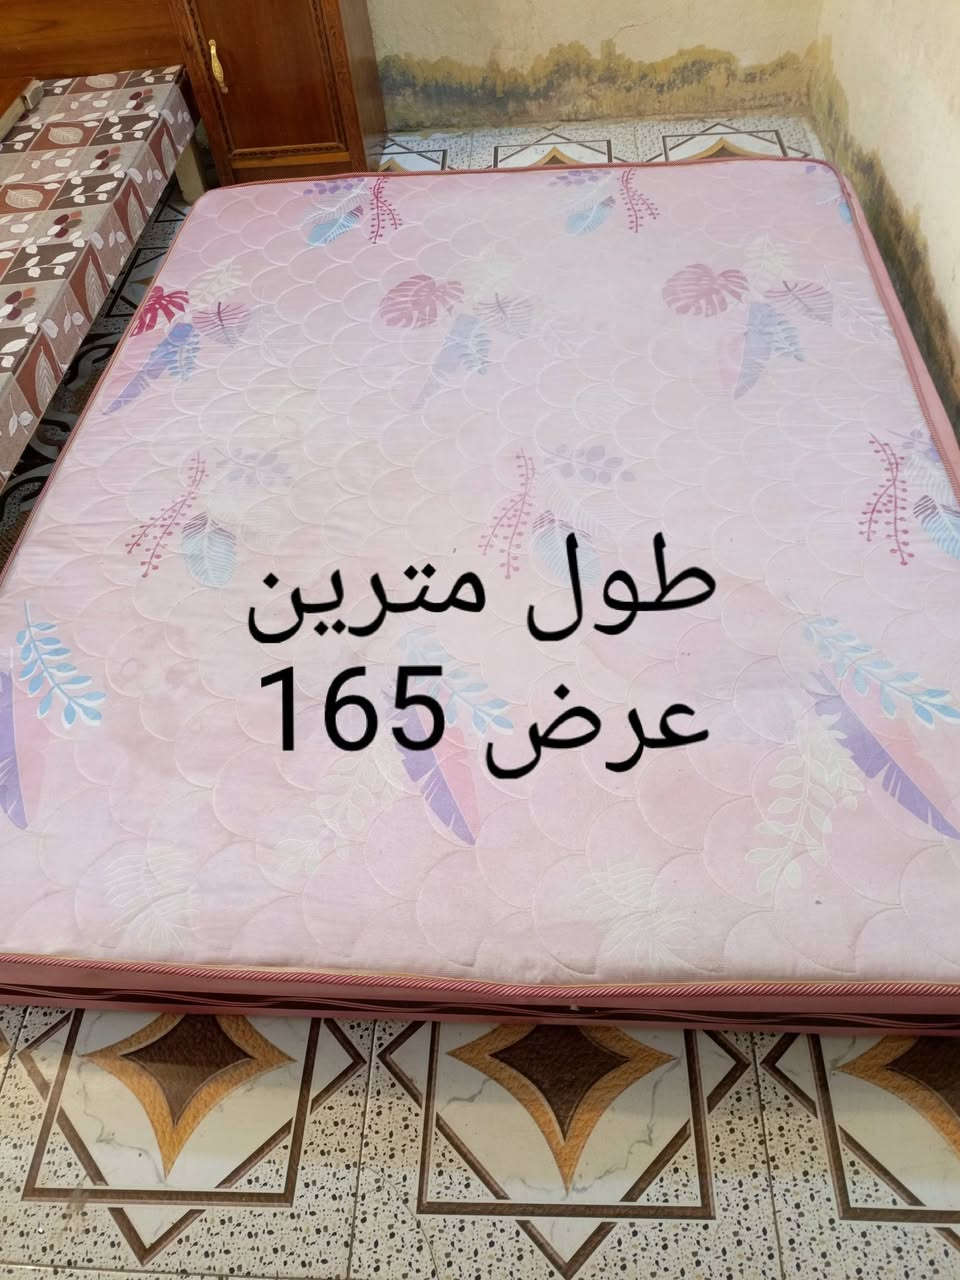 طول مترين
عرض 165